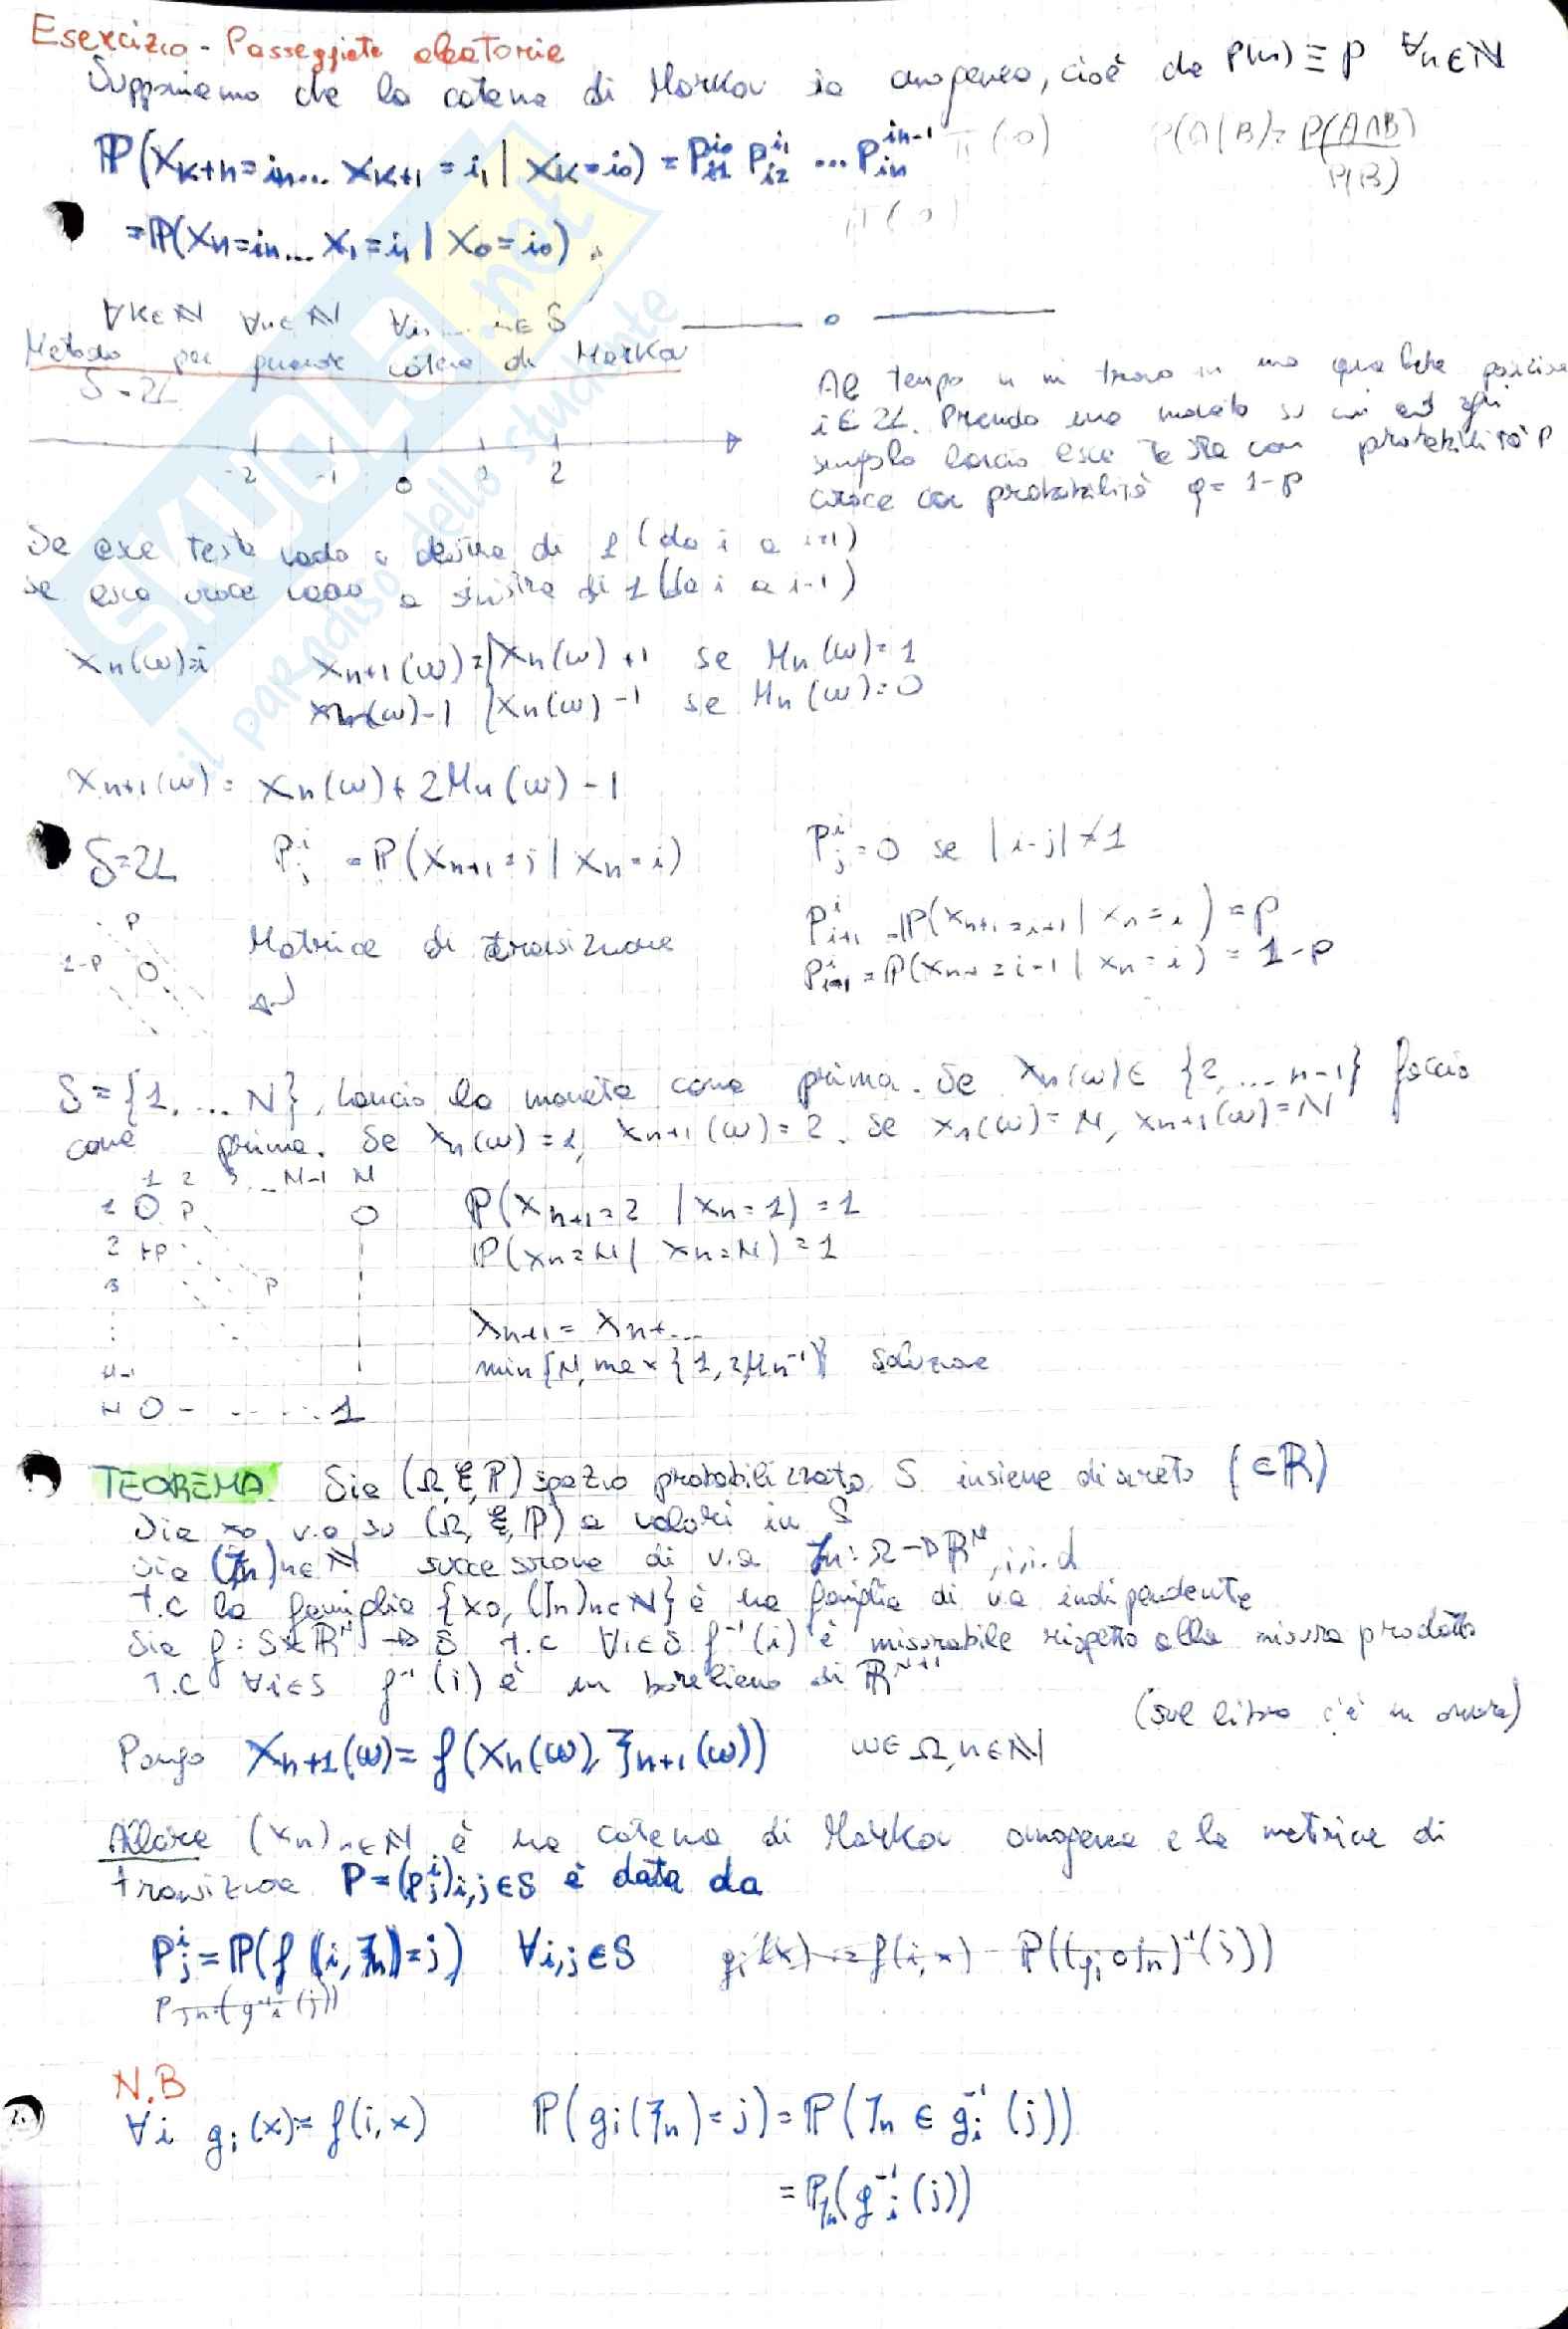 Esercizio - Passeggiate aleatorie
Supponiamo che la catena di Markov sia omogenea, cioè che P(n) ≡ P ∀n∈ℕ
ℙ(X_{k+n}=i_n... X_{k+1}=i_1 | X_k=i_0) = P^{i_0}_{i_1} P^{i_1}_{i_2} ... P^{i_{n-1}}_{i_n} π(0) P(A|B)= P(A∩B)/P(B)
=ℙ(X_n=i_n... X_1=i_1 | X_0=i_0). π(0)
∀k∈ℕ ∀n∈ℕ ∈ S
Metodo per catene di Markov
S=ℤ
-2 -1 0 2
Al tempo n mi trovo in una qualche posizione
i∈ℤ. Prendo una moneta su cui ad ogni
singolo lancio esce testa con probabilità p
croce con probabilità q=1-p
Se esce testa vado a destra di 1 (da i a i+1)
se esce croce vado a sinistra di 1 (da i a i-1)
X_n(ω)=i X_{n+1}(ω)= { X_n(ω)+1 se M_n(ω)=1
X_n(ω)-1 se M_n(ω)=0
X_{n+1}(ω)= X_n(ω)+2M_n(ω)-1
S=ℤ P^i_j = ℙ(X_{n+1}=j | X_n=i) P^i_j=0 se |i-j|≠1
Matrice di transizione
P
1-P 0
P^i_{i+1} =ℙ(X_{n+1}=i+1 | X_n=i)=p
P^i_{i-1}=ℙ(X_{n+1}=i-1 | X_n=i)=1-p
S={1,...N}, Lancio la moneta come prima. Se X_n(ω)∈{2,...n-1} faccio
come prima. Se X_n(ω)=1, X_{n+1}(ω)=2. Se X_n(ω)=N, X_{n+1}(ω)=N
1 2 3 ... N-1 N
1 0 P 0
2 1-P
3 P
N-1
N 0 - ..... 1
ℙ(X_{n+1}=2 | X_n=1)=1
ℙ(X_n=N | X_n=N)=1
X_{n+1}= X_n+...
min{N, max{1, 2M_n-1}} soluzione
TEOREMA Sia (Ω,ℰ,ℙ) spazio probabilizzato, S insieme discreto (∈ℝ)
Sia x_0 v.a su (Ω,ℰ,ℙ) a valori in S
Sia (ζ_n)n∈ℕ successione di v.a ζ_n:Ω→ℝ^N, i.i.d
t.c la famiglia {X_0, (ζ_n)n∈ℕ} è una famiglia di v.a indipendente
Sia f: S×ℝ^N → S t.c ∀i∈S f^{-1}(i) è misurabile rispetto alla misura prodotto
t.c ∀i∈S f^{-1}(i) è un boreliano di ℝ^{N+1}
(sul libro c'è un errore)
Pongo X_{n+1}(ω)= f(X_n(ω), ζ_{n+1}(ω)) ω∈Ω, n∈ℕ
Allora (X_n)n∈ℕ è una catena di Markov omogenea e la matrice di
transizione P=(p^i_j)i,j∈S è data da
P^i_j=ℙ(f(i,ζ_n)=j) ∀i,j∈S g_i(x)=f(i,x) ℙ((g_i∘ζ_n)^{-1}(j))
P_{ζ_n}(g_i^{-1}(j))
N.B
∀i g_i(x)=f(i,x) ℙ(g_i(ζ_n)=j)=ℙ(ζ_n∈g_i^{-1}(j))
=ℙ_{ζ_n}(g_i^{-1}(j))
SKUOLA.net
il paradiso dello studente